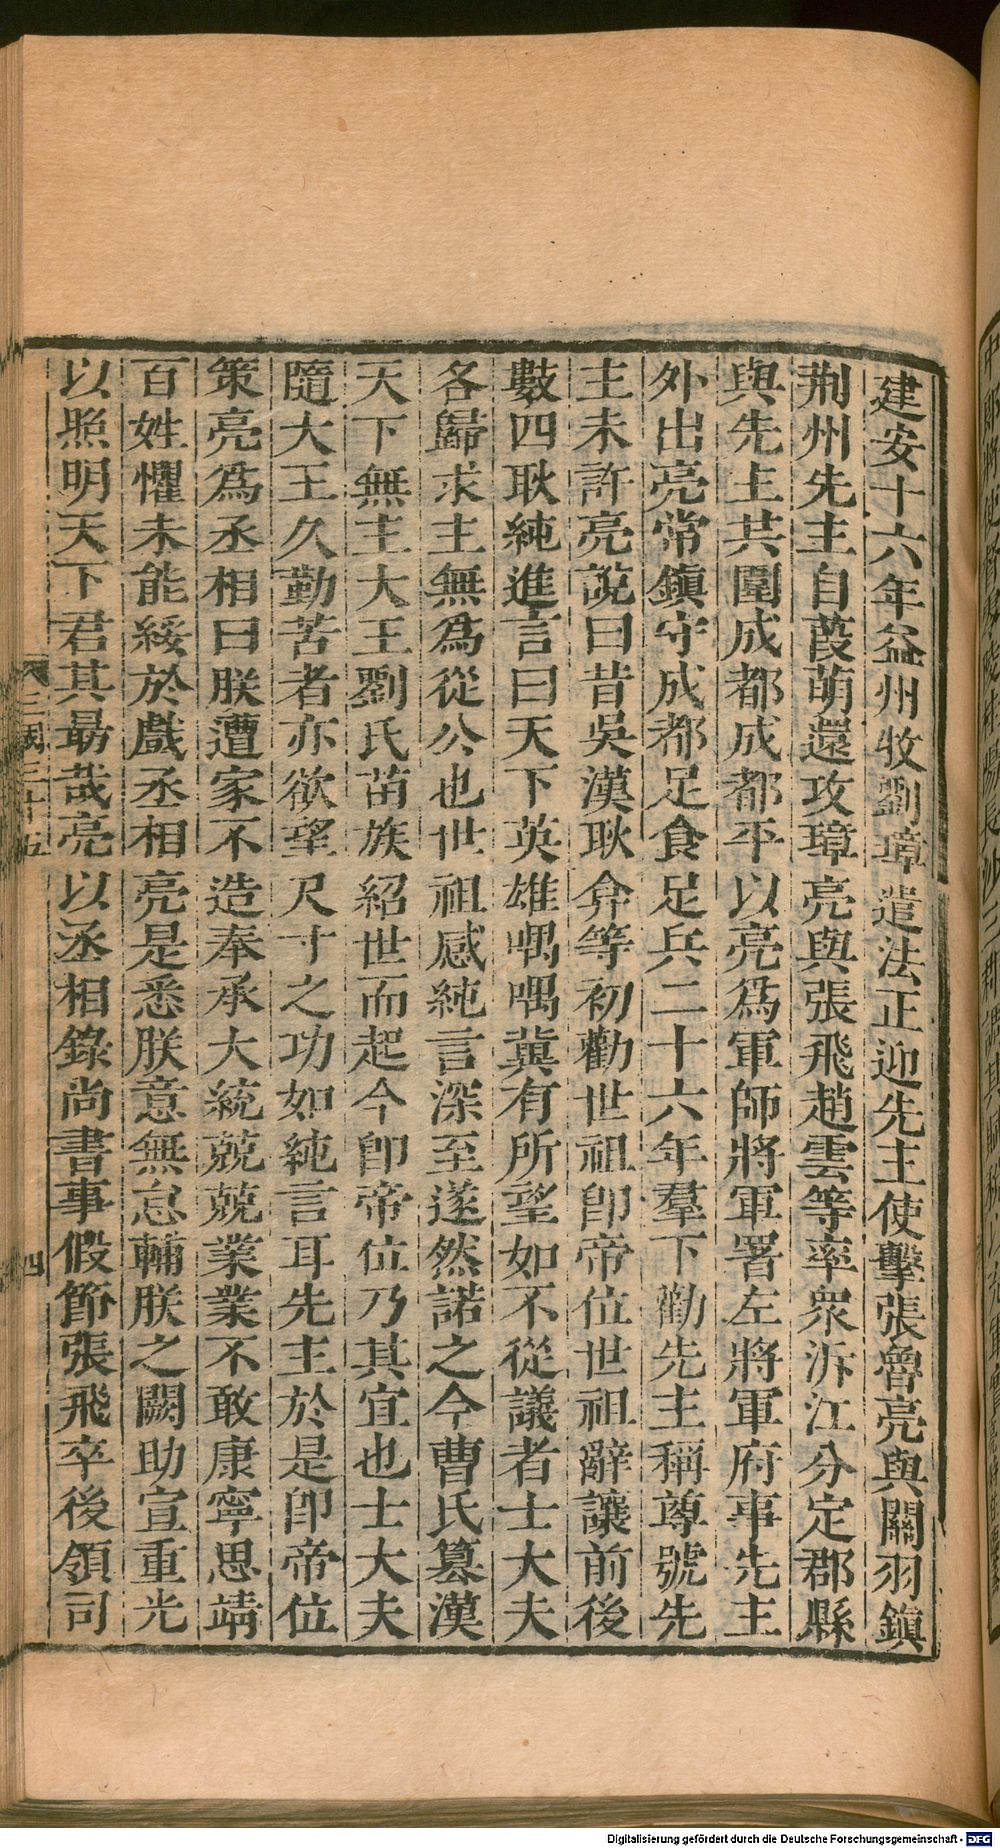 建安十六年益州牧劉璋遣法正迎先主使擊張魯亮與關羽鎭
荆州先主自葭萌還攻璋亮與張飛趙雲等率衆泝江分定郡縣
與先主共圍成都成都平以亮爲軍師將軍署左將軍府事先主
外出亮常鎭守成都足食足兵二十六年羣下勸先主稱尊號先
主未許亮說曰昔吳漢耿弇等初勸世祖卽帝位世祖辭讓前後
數四耿純進言曰天下英雄喁喁冀有所望如不從議者士大夫
各歸求主無爲從公也世祖感純言深至遂然諾之今曹氏篡漢
天下無主大王劉氏苗族紹世而起今卽帝位乃其宜也士大夫
隨大王久勤苦者亦欲望尺寸之功如純言耳先主於是卽帝位
策亮爲丞相曰朕遭家不造奉承大統兢兢業業不敢康寧思靖
百姓懼未能綏於戲丞相亮是悉朕意無怠輔朕之闕助宣重光
以照明天下君其勗哉亮以丞相錄尚書事假節張飛卒後領司
三國三十五
四
Digitalisierung gefördert durch die Deutsche Forschungsgemeinschaft - DFG